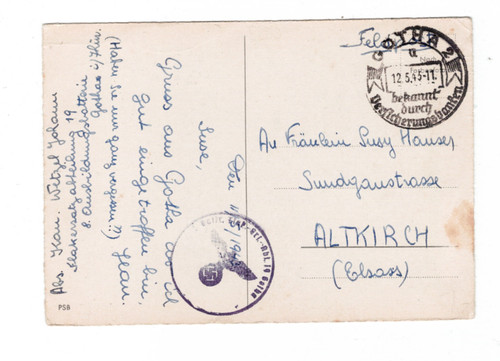 Feldpost
GOTHA 2
u
12.5.43-11
bekannt
durch
Versicherungsbanken
An Fräulein Susy Hauser
Sundgaustrasse
ALTKIRCH
(Elsass)
Den 11.5.1943
Suse,
Gruss aus Gotha wo ich
gut eingetroffen bin.
(Haben Sie mich ganz vergessen?!)
Abs. Kan. Wetzel Johann
Flakersatzabteilung 19
8. Ausbildungsbatterie
Gotha i/Thür.
19 Gotha
PSB